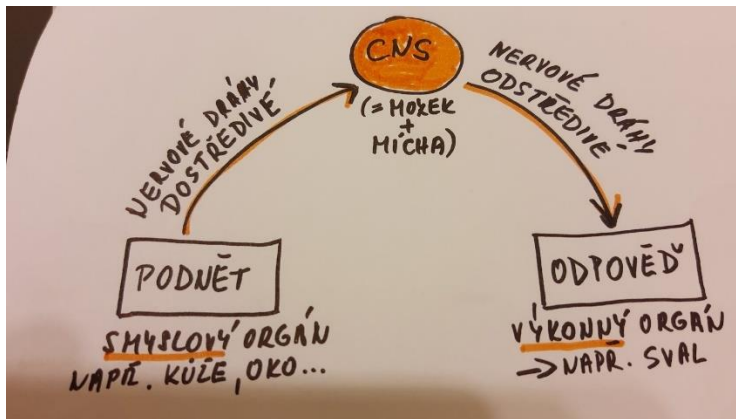 CNS
(= MOZEK
+
MÍCHA)
NERVOVÉ DRÁHY
DOSTŘEDIVÉ
NERVOVÉ DRÁHY
ODSTŘEDIVÉ
PODNĚT
SMYSLOVÝ ORGÁN
NAPŘ. KŮŽE, OKO...
ODPOVĚĎ
VÝKONNÝ ORGÁN
→ NAPŘ. SVAL